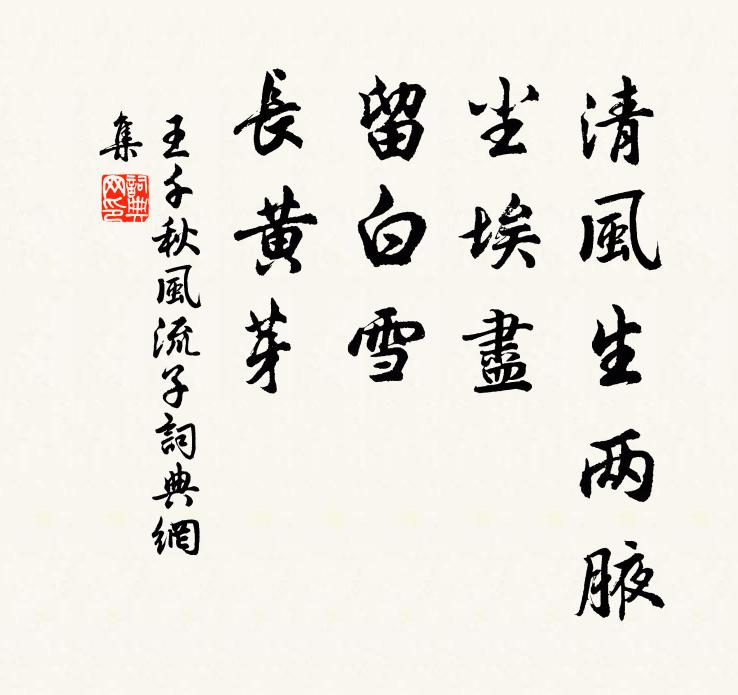 清風生两腋
尘埃盡
留白雪
長黄芽
王千秋風流子詞典網
集
詞典
网印